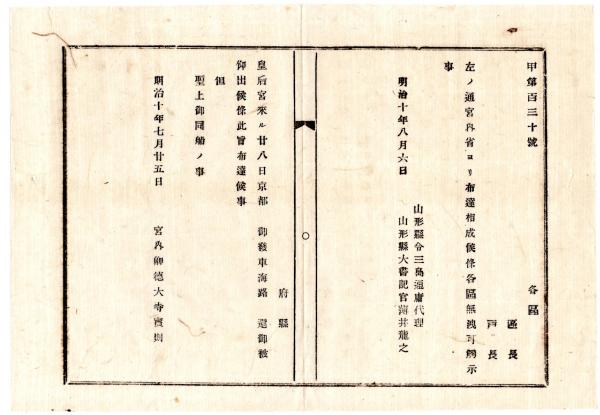 甲第百三十號
各區
區長
戸長
左ノ通宮内省ヨリ布達相成候條各區無洩可觸示
事
明治十年八月六日
山形縣令三島通庸代理
山形縣大書記官薄井龍之
府縣
皇后宮來ル廿八日京都 御發車海路 還御被
仰出候條此旨布達候事
但
聖上御同船ノ事
明治十年七月廿五日 宮内卿德大寺實則